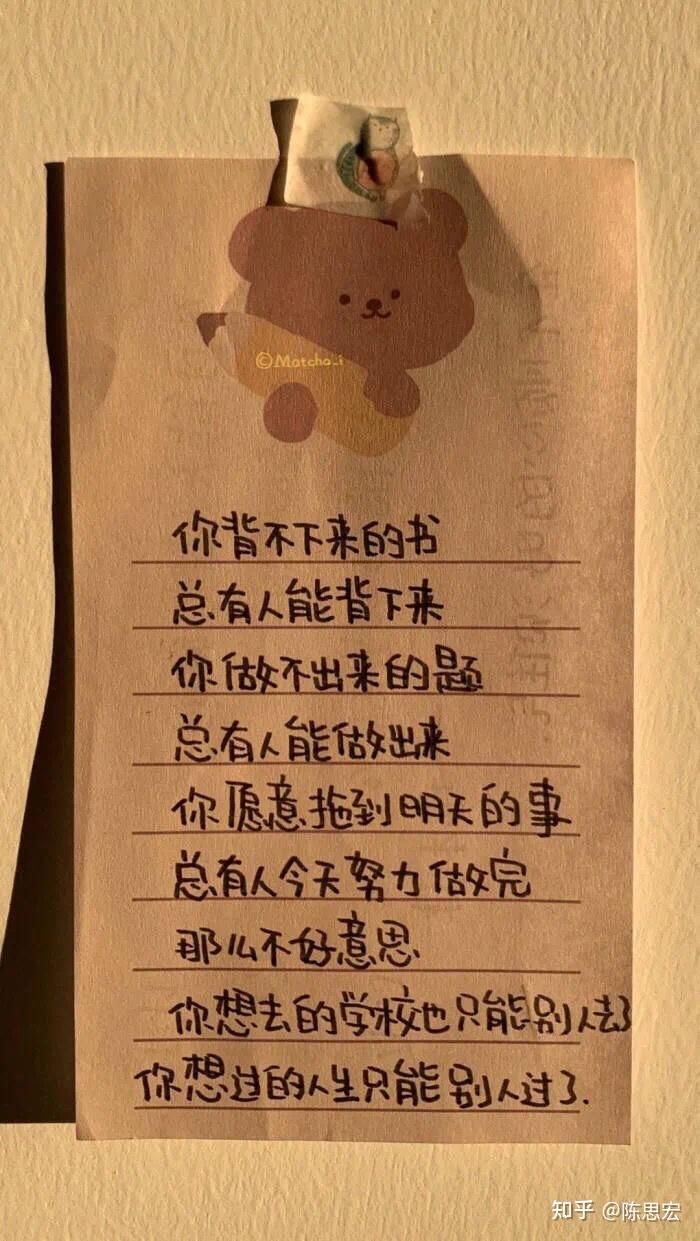 ©Matcha_i
你背不下来的书
总有人能背下来
你做不出来的题
总有人能做出来
你愿意拖到明天的事
总有人今天努力做完
那么不好意思
你想去的学校也只能别人去了
你想过的人生只能别人过了.
知乎 @陈思宏